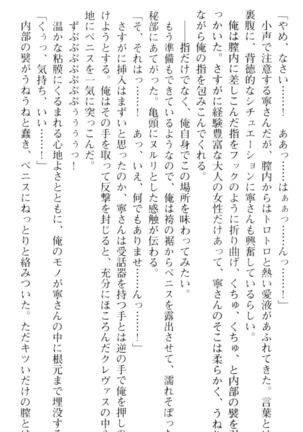 「やめ、なさい……！　ああっ……はぁぁっ……んっ……！」
小声で注意する寧さんだが、膣内からはトロトロと熱い愛液があふれてきた。言葉とは
裏腹に、背徳的なシチュエーションに寧さんも興奮しているらしい。
俺は膣内に差しこんだ指をフックのように折り曲げ、くちゅ、くちゅ、と内部の襞を
っかいた。さすがに経験豊富な大人の女性だけあって、寧さんのそこは柔らかく、うねり
俺の指を包みこんでくれる。
──指だけでなく、俺自身でこの場所を味わってみたい。
もう準備もできているようなので、俺は袴の裾からペニスを露出させて、濡れそぼった
秘部にあてがった。亀頭にヌルリとした感触が伝わる。
「そ、それは……！　あっ、いえ、何でもありませ……んっ……！」
さすがに挿入はまずいと思ったのか、寧さんは受話器を持つ手とは逆の手で俺を押しの
けようとする。俺はその手を取って反撃を封じると、充分にほころんだクレヴァスの中
地にペニスを一気に突こんだ。
ずぶぶぶぶぶぅぅぅっ！
温かな粘膜にくるまれる心地よさとともに、俺のモノが寧さんの中に根元まで埋没する
「くぅっ、気持ち、いい……！」
内部の襞がうねうねと蠢き、ペニスにねっとりと絡みついた。ただキツいだけの膣とは